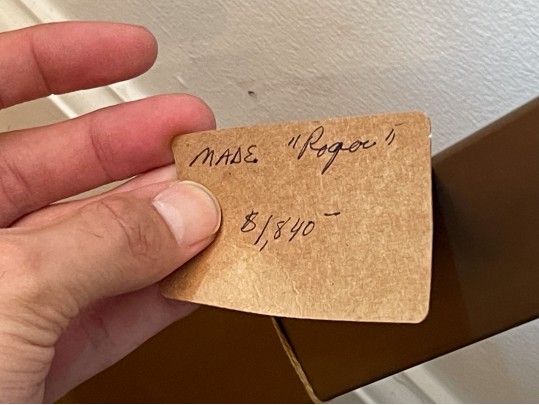 MADE "Roger"
$1,840-